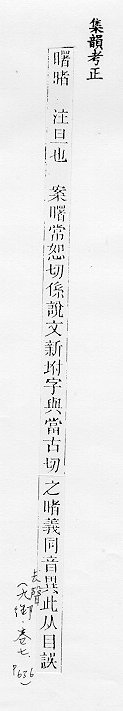 集韻考正
曙睹 注旦也 案曙常恕切係說文新坿字與當古切之暏義同音異此从目誤
去聲
(九御．卷七．
P636